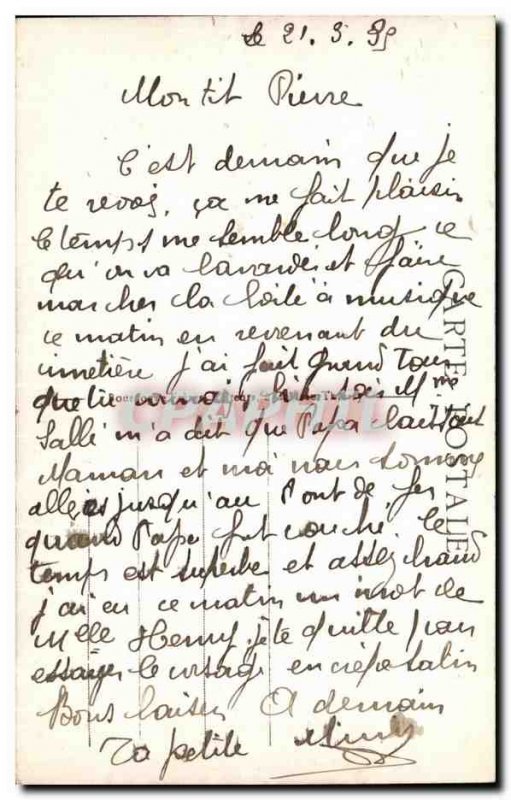 le 21. 3. 35
Mon tit Pierre
C'est demain que je
te revois, ça me fait plaisir
le temps me semble long ce
qu'on va bavarder et faire
marcher la boîte à musique
ce matin en revenant du
cimetière j'ai fait grand tour
que tu Mme
Sallé m'a dit que Papa
Maman et moi nous sommes
allés jusqu'au Pont de fer
quand Papa fut couché. le
temps est superbe et assez chaud
j'ai eu ce matin un mot de
Melle Henry. je te quitte pour
essayer le corsage en crépe satin
Bons baisers A demain
Ta petite
CARTE POSTALE